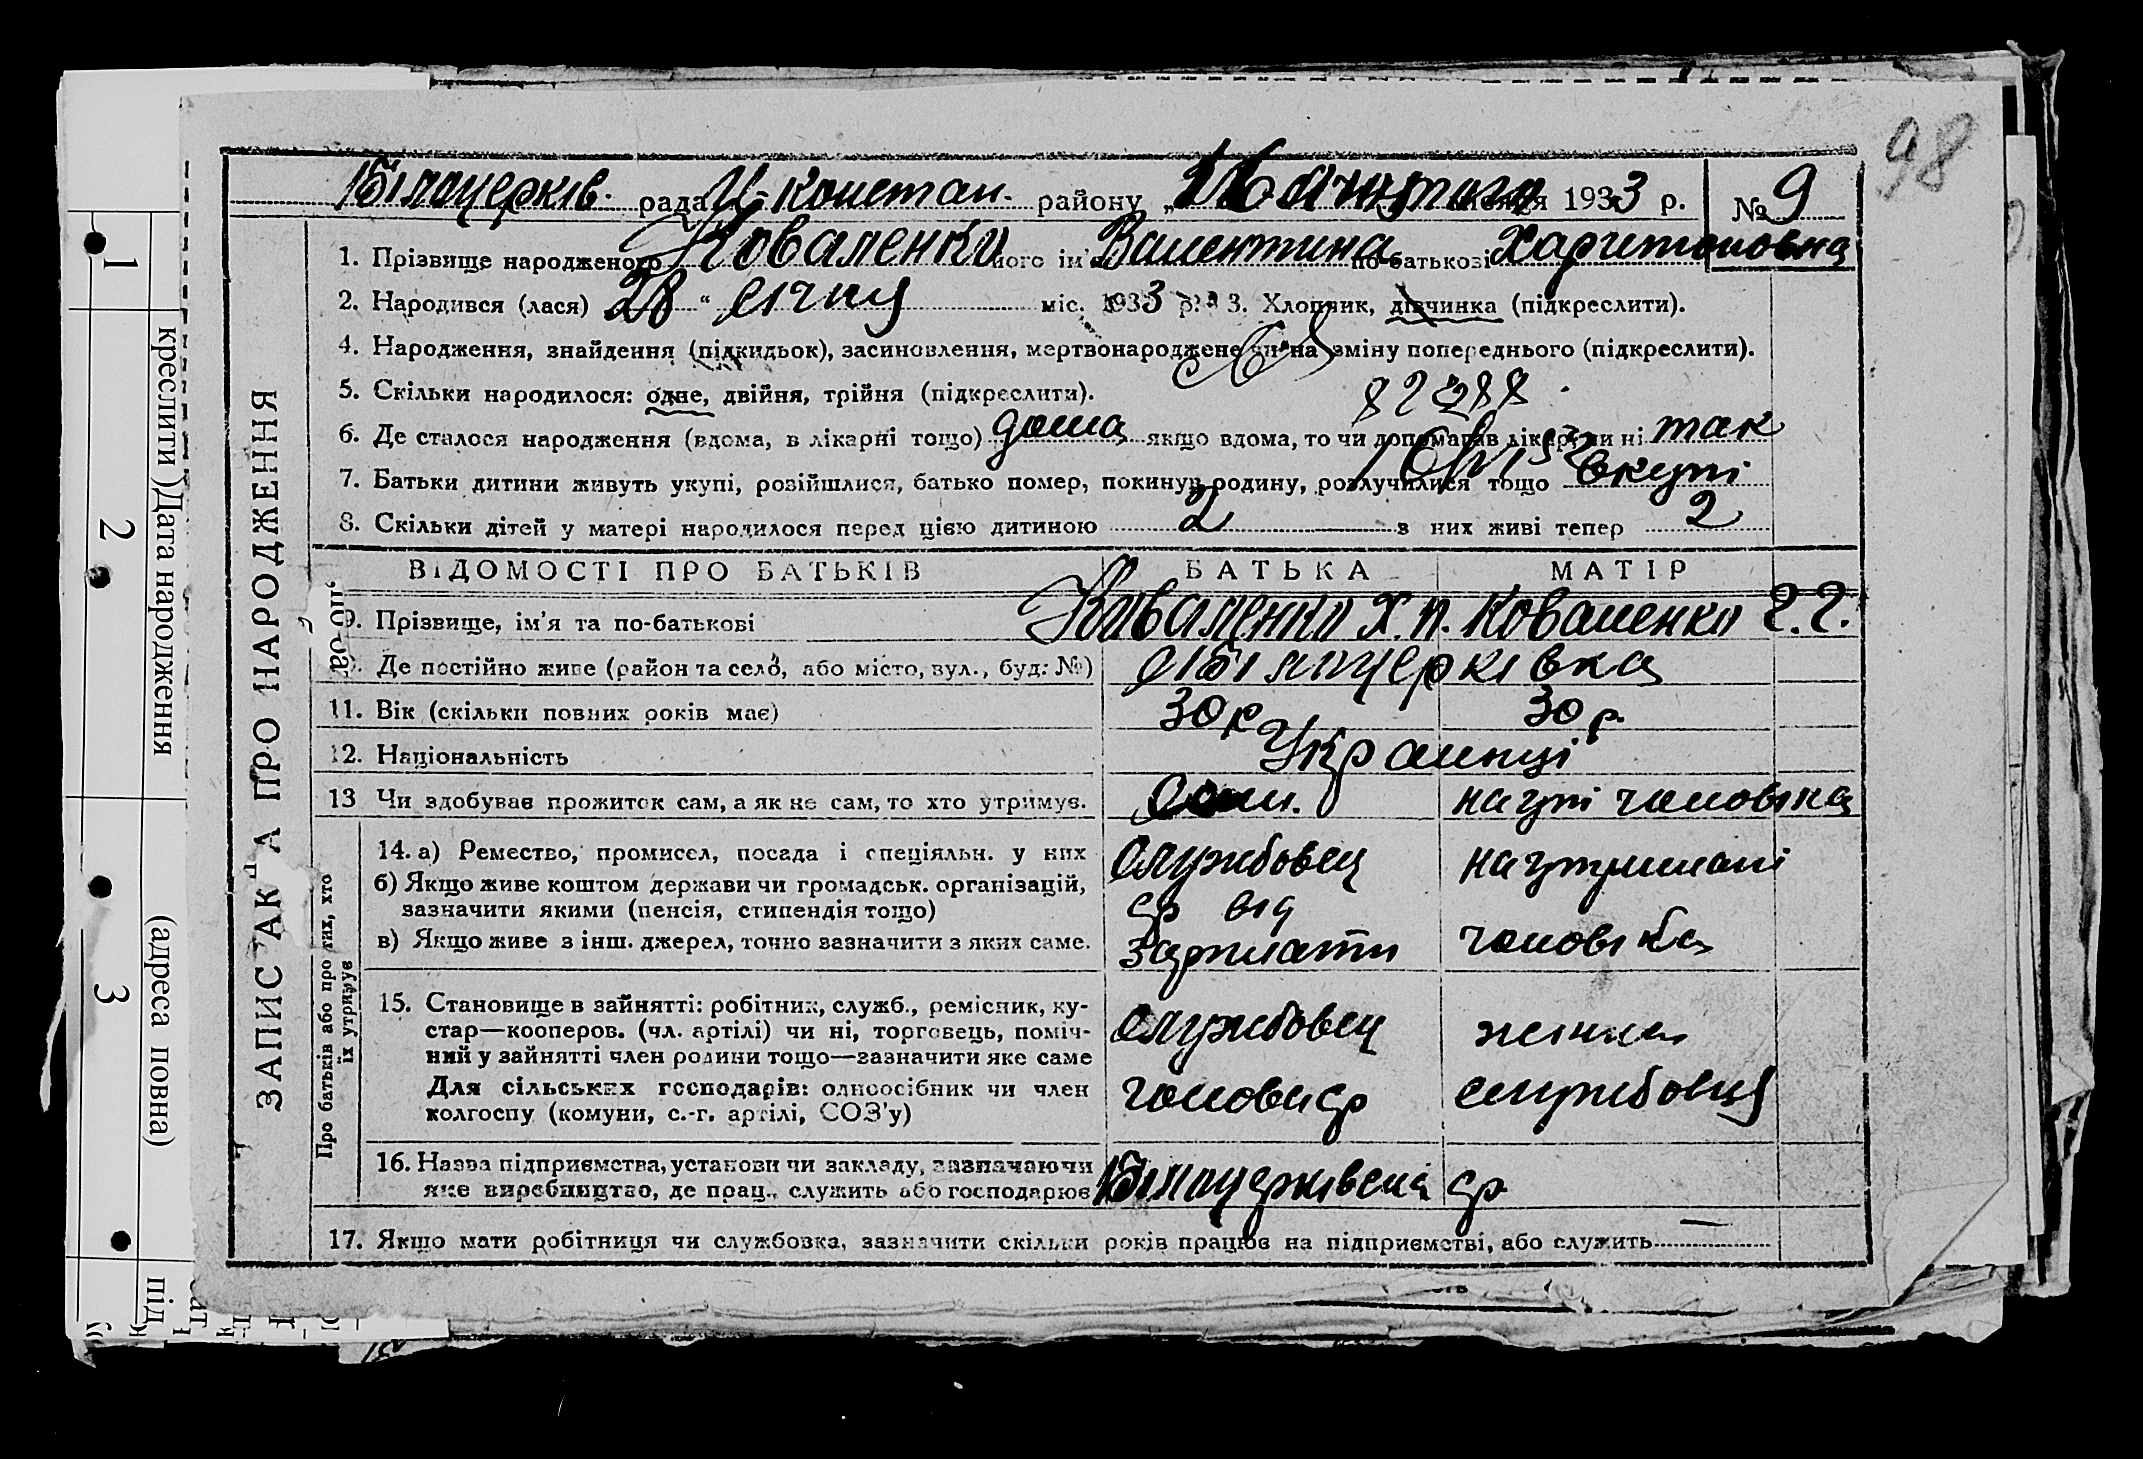 98
Білоцерків. рада Н-Констан. району „16 лютого місяця 1933 р. № 9
1. Прізвище народженого Коваленко його ім'я Валентина по-батькові Харитоновна
2. Народився (лася) 28 “ січня міс. 1933 р. 3. Хлопчик, дівчинка (підкреслити).
4. Народження, знайдення (підкидьок), засиновлення, мертвонароджене чи на зміну попереднього (підкреслити).
5. Скільки народилося: одне, двійня, трійня (підкреслити).
6. Де сталося народження (вдома, в лікарні тощо) дома якщо вдома, то чи допомагав лікар чи ні так
7. Батьки дитини живуть укупі, розійшлися, батько помер, покинув родину, розлучилися тощо вкупі
8. Скільки дітей у матері народилося перед цією дитиною 2 з них живі тепер 2
ВІДОМОСТІ ПРО БАТЬКІВ БАТЬКА МАТІР
9. Прізвище, ім'я та по-батькові Коваленко Х. П. Коваленко Г. Г.
Де постійно живе (район та село, або місто, вул., буд. №) с Білоцерківка
11. Вік (скільки повних років має) 30 р 30 р.
12. Національність Українці
13 Чи здобував прожиток сам, а як не сам, то хто утримує. Сам. на утр чоловіка
14. а) Ремество, промисел, посада і спеціяльн. у них Службовец на утримані
б) Якщо живе коштом держави чи громадськ. організацій, ср від
зазначити якими (пенсія, стипендія тощо)
в) Якщо живе з інш. джерел, точно зазначити з яких саме. зарплати чоловіка
15. Становище в зайнятті: робітник, служб., ремісник, ку-
стар—кооперов. (чл. артілі) чи ні, торговець, поміч- Службовец жінка
ний у зайнятті член родини тощо—зазначити яке саме
Для сільських господарів: одноосібник чи член голова ср службовця
колгоспу (комуни, с.-г. артілі, СОЗ'у)
16. Назва підприємства, установи чи закладу, зазначаючи Білоцерківська ср
яке виробництво, де прац., служить або господарює
17. Якщо мати робітниця чи службовка, зазначити скільки років працює на підприємстві, або служить —
ЗАПИС АКТА ПРО НАРОДЖЕННЯ
Про батьків або про тих, хто
їх утримує
1
2
3
креслити ) Дата народження
(адреса повна)
під